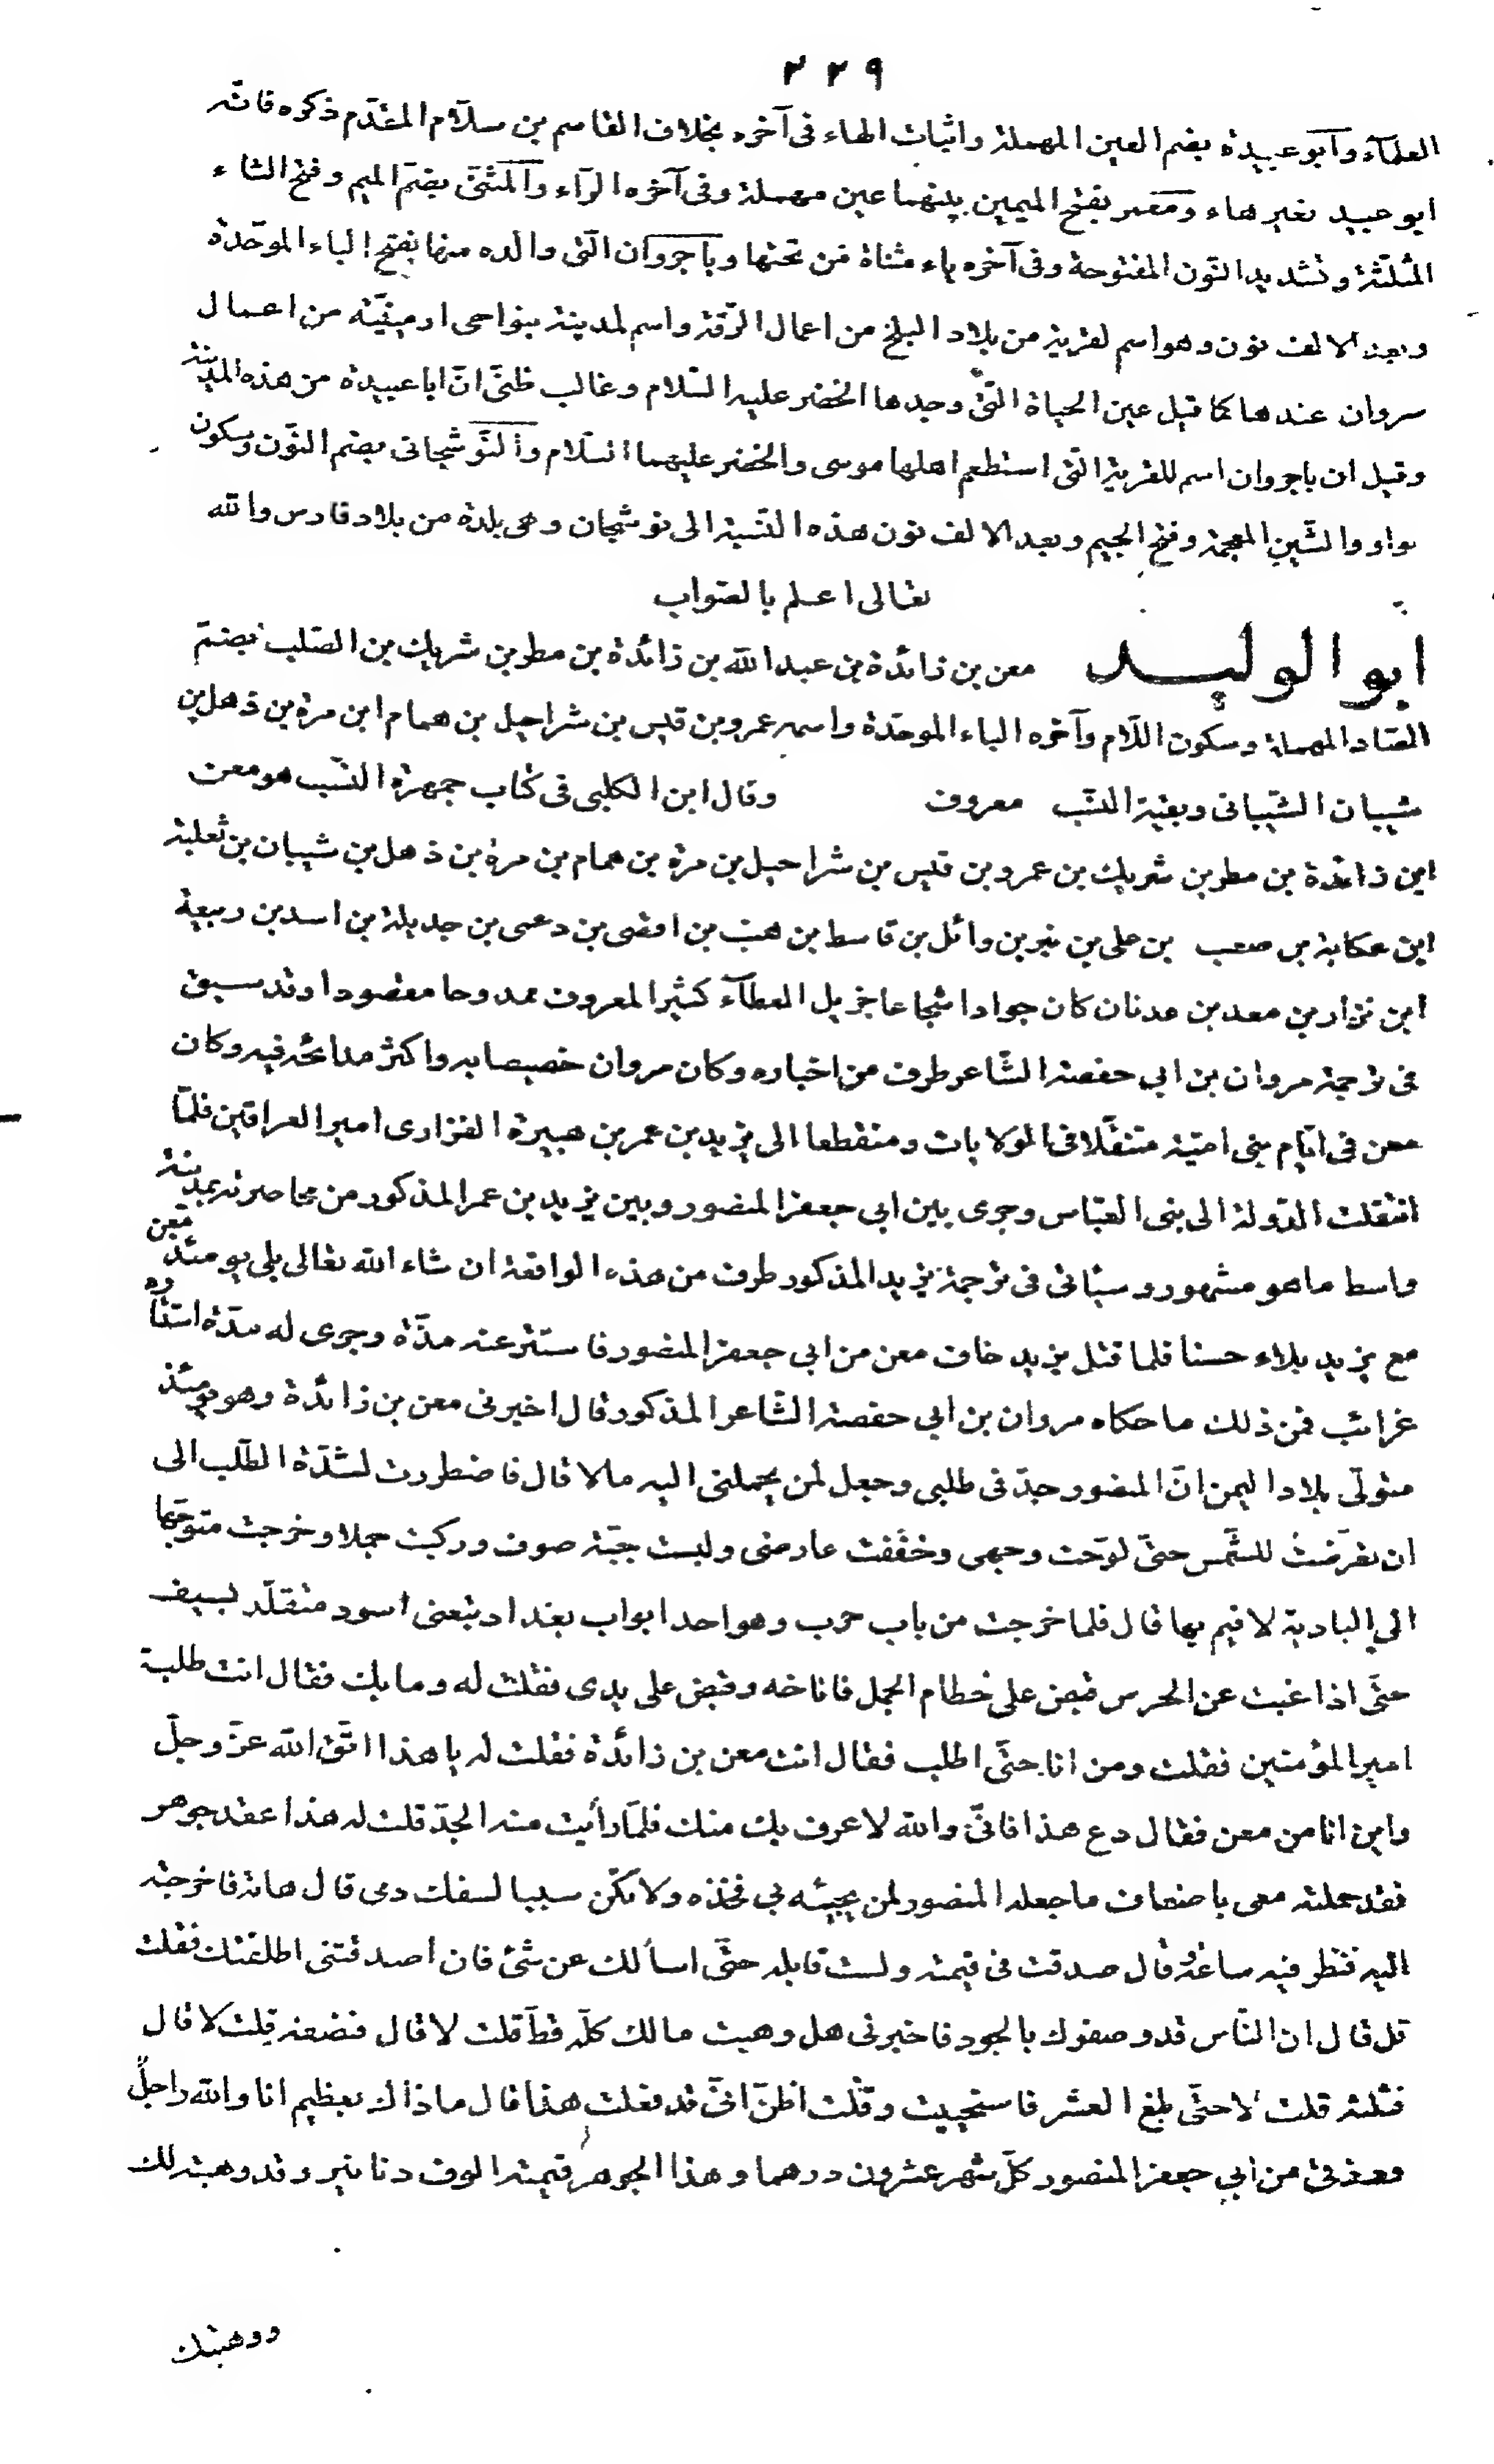 ٢٢٩
العلمآء وآبو عبيدة بضم العين المهملة واثبات الهاء فى آخره بخلاف القاسم بن سلّام المقدّم ذكره فانّه
ابو عبيد بغير هاء ومعمر بفتح الميمين بينهما عين مهملة وفى آخره الرآء وآلمثنّى بضمّ الميم وفتح الثاء
المثلّثة وتشديد النّون المفتوحة وفى آخره ياء مثناة من تحتها وباجروان الّتى والده منها بفتح الباء الموحّدة
وبعد الالف نون وهو اسم لقرية من بلاد البلخ من اعمال الرّقة واسم لمدينة بنواحى ارمينيّة من اعمال
سروان عندها كما قيل عين الحياة الّتى وجدها الخضر عليه السّلام وغالب ظنّى انّ ابا عبيدة من هذه المدينة
وقيل ان باجروان اسم للقرية الّتى استطعم اهلها موسى والخضر عليهما السّلام وآلنّوشجانى بضم النّون وسكون
بواو والشّين المعجمة وفتح الجيم وبعد الالف نون هذه النّسبة الى نوشجان وهى بلدة من بلاد فارس والله
تعالى اعلم بالصّواب
ابو الوليد معن بن زائدة بن عبد الله بن زائدة بن مطر بن شريك بن الصّلب بضمّ
الصّاد المهملة وسكون اللّام وآخره الباء الموحّدة واسمه عمرو بن قيس بن شراحيل بن همام ابن مرة بن ذهل بن
شيبان الشّيبانى وبقيّة النّسب معروف وقال ابن الكلبى فى كتاب جمهرة النّسب هو معن
ابن زائدة بن مطر بن شريك بن عمرو بن قيس بن شراحيل بن مرة بن همام بن مرة بن ذهل بن شيبان بن ثعلبة
ابن عكابة بن صعب بن على بن بكر بن وائل بن قاسط بن هنب بن افصى بن دعمى بن جديلة بن اسد بن ربيعة
ابن نزار بن معد بن عدنان كان جوادا شجاعا جزيل العطآء كثير المعروف ممدوحا مقصودا وقد سبق
فى ترجمة مروان بن ابى حفصة الشّاعر طرف من اخباره وكان مروان خصيصا به واكثر مدائحه فيه وكان
معن فى ايّام بنى اميّة متنقّلا فى الولايات ومنقطعا الى يزيد بن عمر بن هبيرة الفزارى امير العراقين فلمّا
انتقلت الدّولة الى بنى العبّاس وجرى بين ابى جعفر المنصور وبين يزيد بن عمر المذكور من محاصرته بمدينة
واسط ما هو مشهور وسيأتى فى ترجمة يزيد المذكور طرف من هذه الواقعة ان شاء الله تعالى بلى يومئذ معن
مع يزيد بلاء حسنا فلما قتل يزيد خاف معن من ابى جعفر المنصور فاستتر عنه مدّة وجرى له مدّة استتاره
غرائب فمن ذلك ما حكاه مروان بن ابى حفصة الشّاعر المذكور قال اخبرنى معن بن زائدة وهو يومئذ
متولّى بلاد اليمن انّ المنصور جدّ فى طلبى وجعل لمن يحملنى اليه مالا قال فاضطررت لشدّة الطّلب الى
ان تعرّضت للشّمس حتى لوّحت وجهى وخفّفت عارضى ولبست جبّة صوف وركبت جملا وخرجت متوجّها
الى البادية لاقيم بها قال فلما خرجت من باب حرب وهو احد ابواب بغداد تبعنى اسود متقلّد بسيف
حتّى اذا غبت عن الحرس قبض على خطام الجمل فاناخه وقبض على يدى فقلت له وما بك فقال انت طلبة
امير المؤمنين فقلت ومن انا حتّى اطلب فقال انت معن بن زائدة فقلت له يا هذا اتّق الله عزّ وجلّ
واين انا من معن فقال دع هذا فانّى والله لاعرف بك منك فلمّا رأيت منه الجدّ قلت له هذا عقد جوهر
فقد حملته معى باضعاف ما جعله المنصور لمن يجيئه بى فخذه ولا تكن سببا لسفك دمى قال هاته فاخرجته
اليه فنظر فيه ساعة وقال صدقت فى قيمته ولست قابله حتّى اسألك عن شئ فان اصدقتنى اطلقتك فقلت
قل قال ان النّاس قد وصفوك بالجود فاخبرنى هل وهبت مالك كلّه قطّ قلت لا قال فنصفه قلت لا قال
فثلثه قلت لا حتّى بلغ العشر فاستحييت وقلت اظنّ انّى قد فعلت هذا قال ما ذاك بعظيم انا والله راجلٌ
ورزقى من ابى جعفر المنصور كلّ شهر عشرون درهما وهذا الجوهر قيمته الوف دنانير وقد وهبته لك
ووهبتك